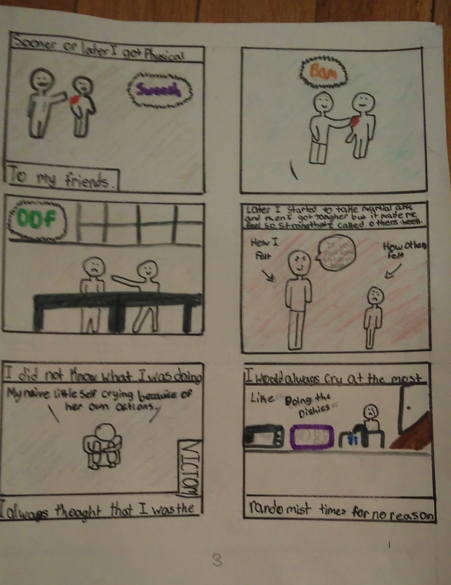 Sooner or later I got Physical
Swoosh
To my friends.
Bam
OOF
Later I started to take martial arts
and then I got tougher but it made me
feel so strong that I called others weak.
How I
felt
How others
felt
I did not know what I was doing
My naive little self crying because of
her own actions.
VICTOM
I always thought that I was the
I would always cry at the most
Like Doing the
Dishies
randomist times for no reason
3